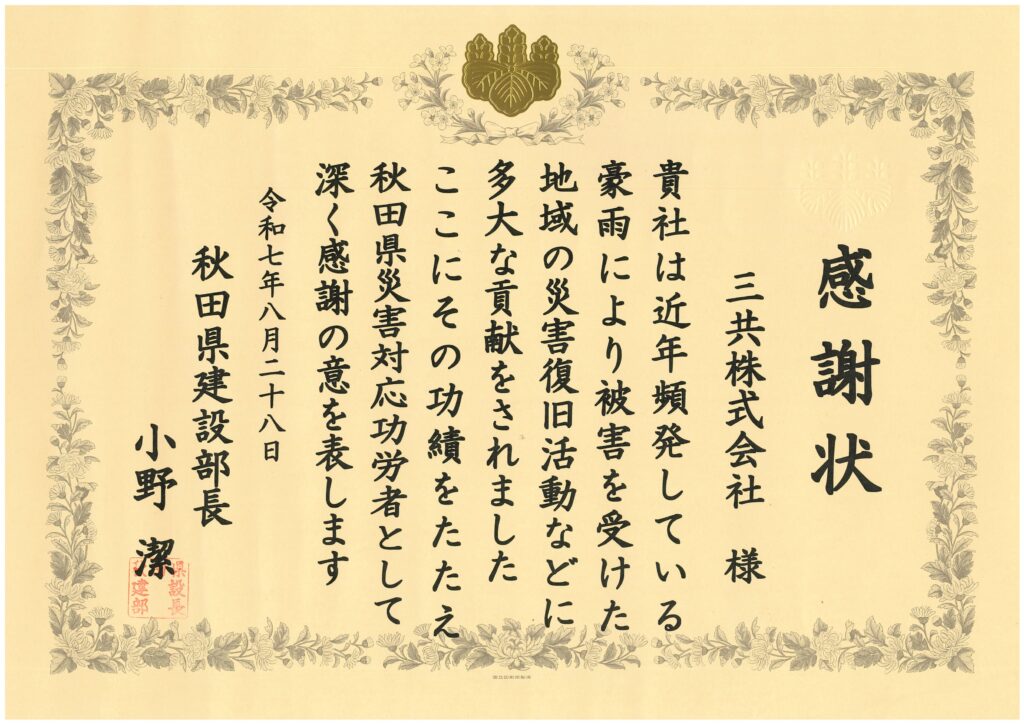 感謝状
三共株式会社　様
貴社は近年頻発している
豪雨により被害を受けた
地域の災害復旧活動などに
多大な貢献をされました
ここにその功績をたたえ
秋田県災害対応功労者として
深く感謝の意を表します
令和七年八月二十八日
秋田県建設部長
小野　潔